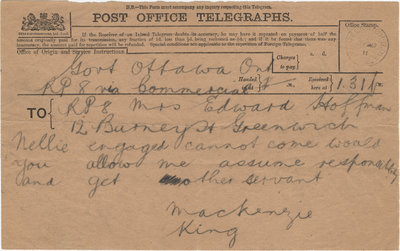 N.B.—This Form must accompany any inquiry respecting this Telegram.
POST OFFICE TELEGRAPHS.
If the Receiver of an Inland Telegram doubts its accuracy, he may have it repeated on payment of half the
amount originally paid for its transmission, any fraction of 1d. less than ½d. being reckoned as ½d.; and if it be found that there was any
inaccuracy, the amount paid for repetition will be refunded. Special conditions are applicable to the repetition of Foreign Telegrams.
Office Stamp.
Office of Origin and Service Instructions.
Charges to pay
s. d.
Govt Ottawa Ont
RP 8 via Commercial
Handed in at
M.
Received here at
1.31
TO
RP 8 Mrs Edward Hoffman
12, Burney St Greenwich
Nellie engaged cannot come would
you allow me assume responsibility
and get another servant
Mackenzie
King